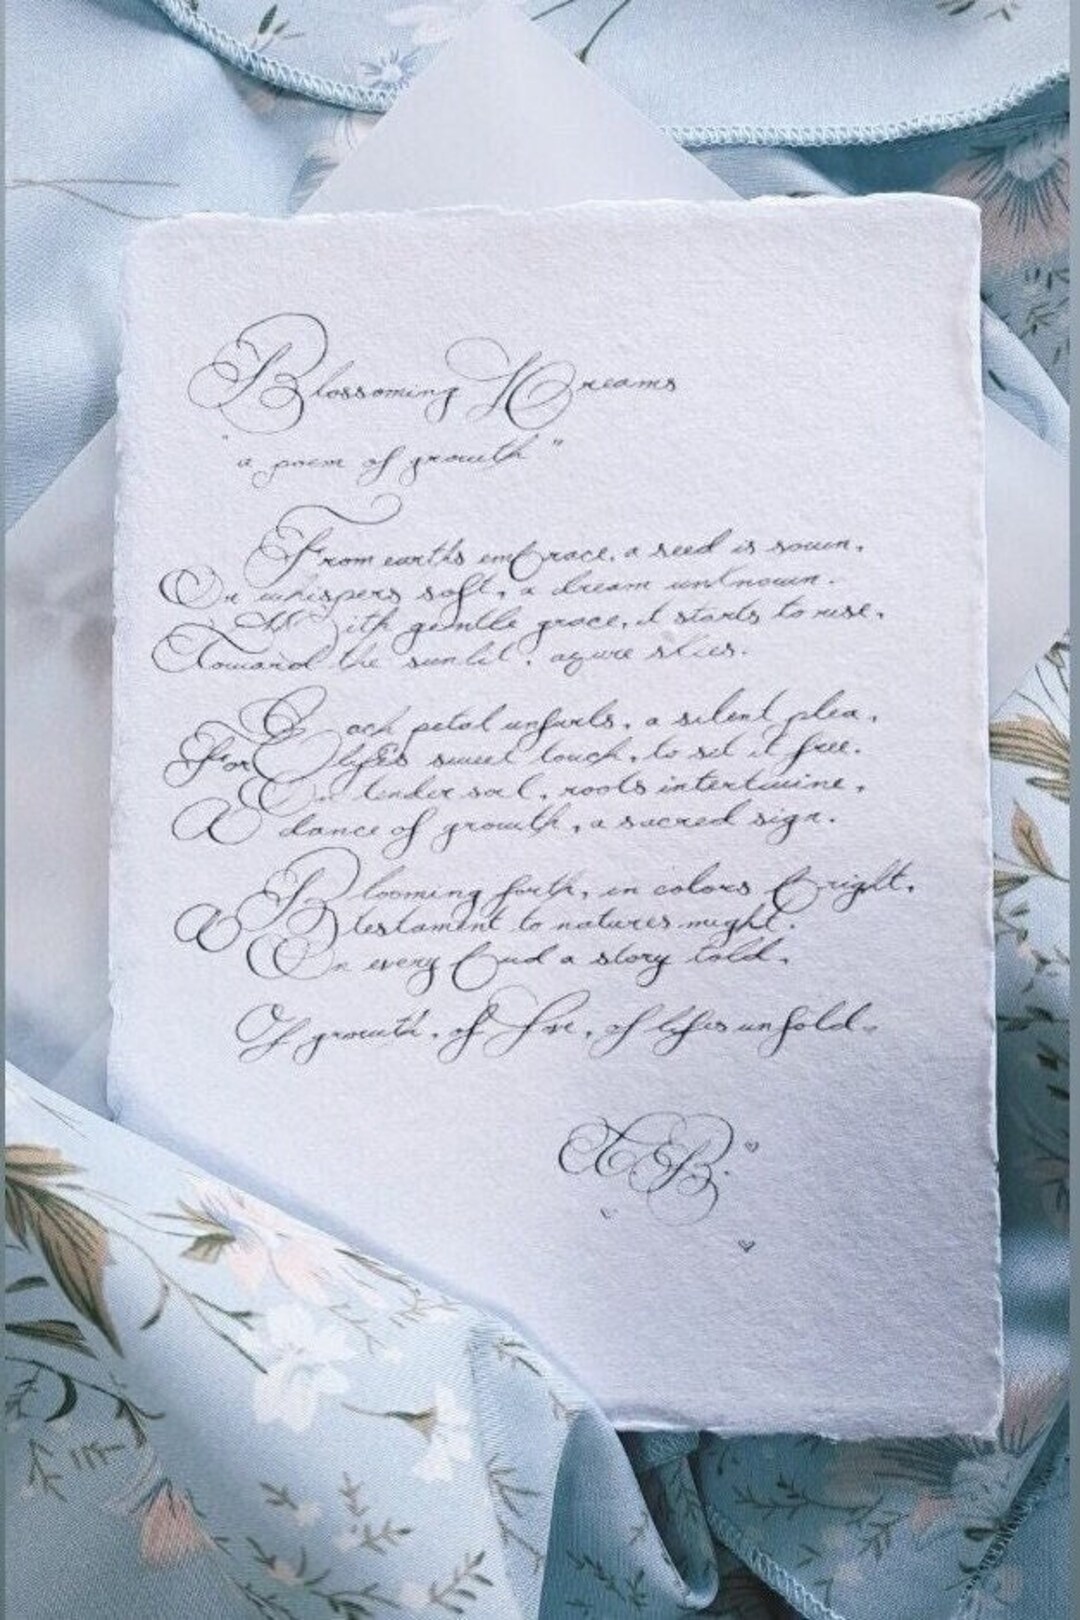 Blossoming Dreams
"a poem of growth"
From earths embrace, a seed is sown,
In whispers soft, a dream unknown.
With gentle grace, it starts to rise,
Toward the sunlit, azure skies.
Each petal unfurls, a silent plea,
For lifes sweet touch, to set it free.
In tender soil, roots intertwine,
A dance of growth, a sacred sign.
Blooming forth, in colors bright,
A testament to natures might.
In every bud a story told,
Of growth, of love, of lifes unfold.
A.B.